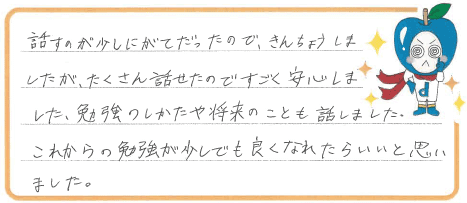 話すのが少しにがてだったので、きんちょうしま
したが、たくさん話せたのですごく安心しま
した。勉強のしかたや将来のことも話しました。
これからの勉強が少しでも良くなれたらいいと思い
ました。
d